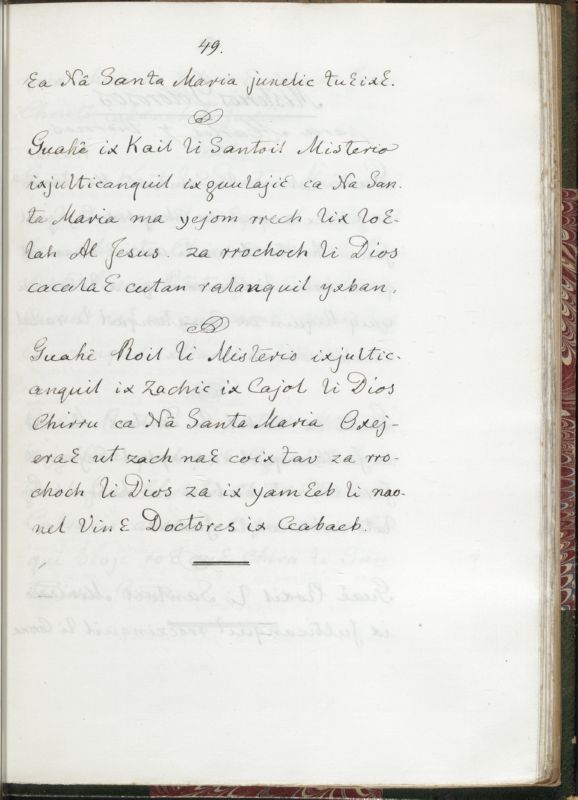 49.
Ɛa Nâ Santa Maria junelic tuƐixƐ.
Guahê ix Kail li Santoil Misterio
ixjulticanquil ixguulajic ca Na San-
ta Maria ma yejom rrech lix loƐ-
lah Al Jesus. za rrochoch li Dios
cacalaƐ cutan ralanquil yxban.
Guahê Roil li Misterio ixjultic-
anquil ix zachic ix Cajol li Dios
Chirru ca Nâ Santa Maria Oxej-
eraƐ ut zach naƐ coixtav za rro-
choch li Dios za ix yamƐeb li nao-
nel VinƐ Doctores ix Ccabaeb.